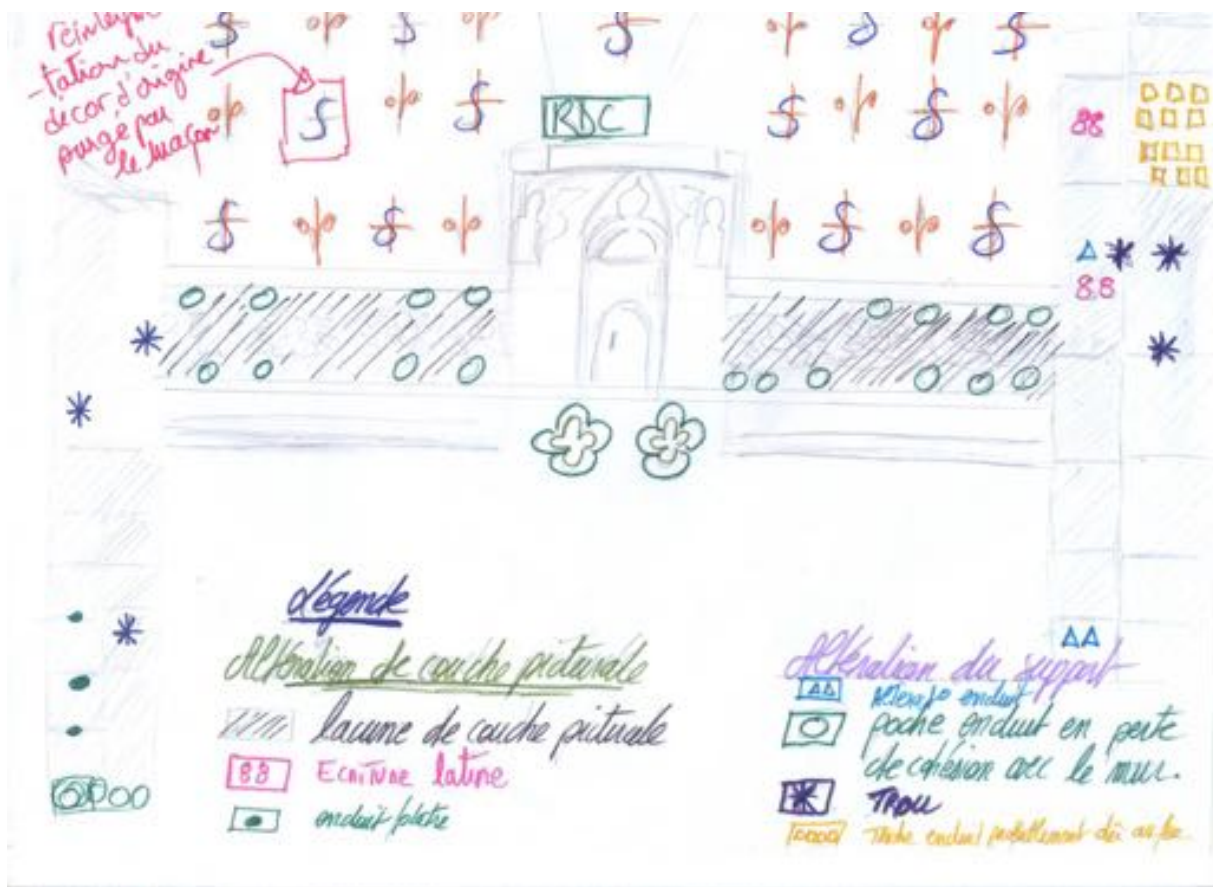 -tation du
décor d'origine
purgé par
le maçon
RDC
88
88
Légende
Altération de couche picturale
lacune de couche picturale
88 Ecriture latine
enduit plâtre
Altération du support
enduit
poche enduit en perte
de cohésion avec le mur.
TROU
Tache enduit probablement dû au feu